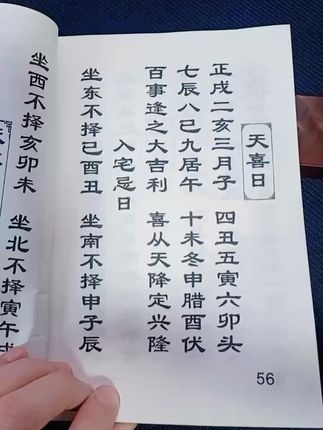 天喜日
正戌二亥三月子 四丑五寅六卯头
七辰八巳九居午 十未冬申腊酉伏
百事逢之大吉利 喜从天降定兴隆
入宅忌日
坐东不择巳酉丑 坐南不择申子辰
坐西不择亥卯未 坐北不择寅午戌
56